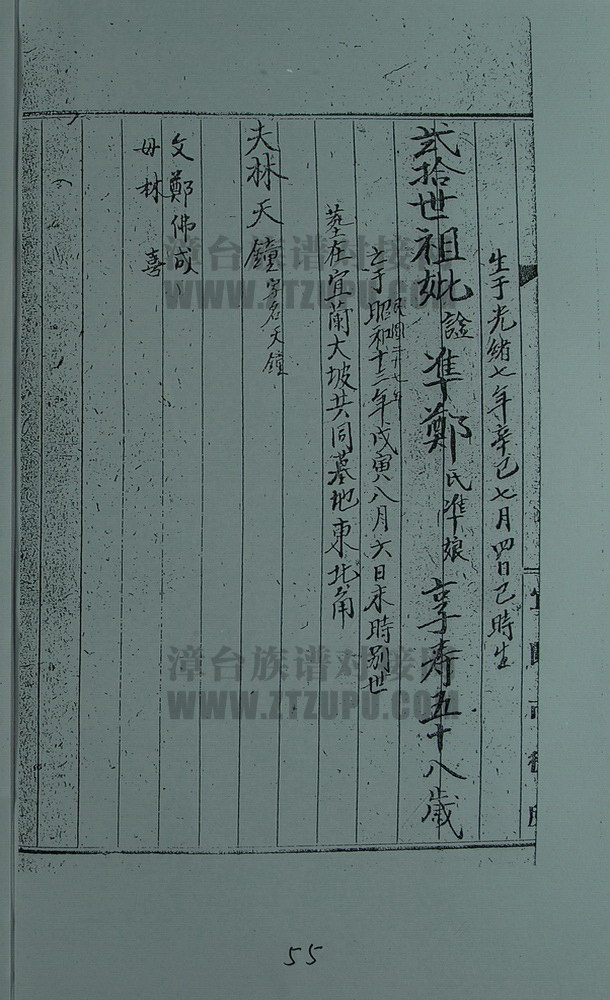 生于光緒七年辛巳七月四日巳時生
弍拾世祖妣諡準鄭氏準娘享寿五十八歲
民國二十七年
亡于昭和十三年戊寅八月六日未時別世
葬在宜蘭大坡共同墓地東北角
夫林天鐘字名天鐘
父鄭佛成
母林喜
漳台族谱对接网
WWW.ZTZUPU.COM
漳台族谱对接网
WWW.ZTZUPU.COM
55